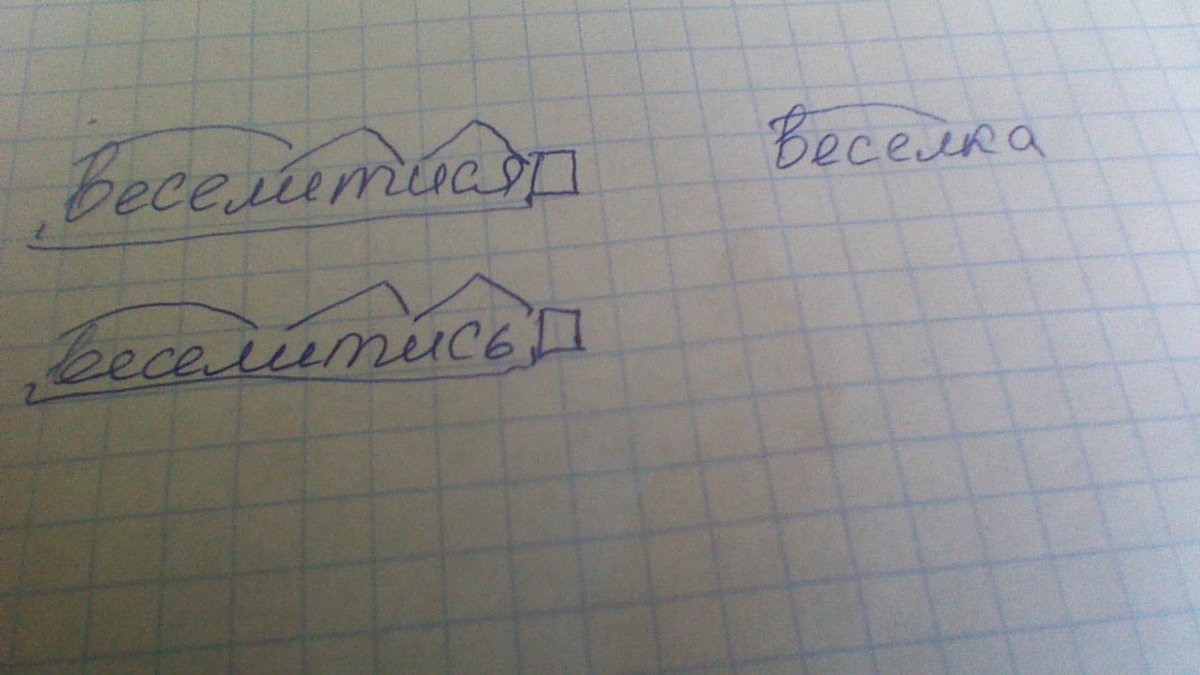 Веселитися Веселка
веселитись